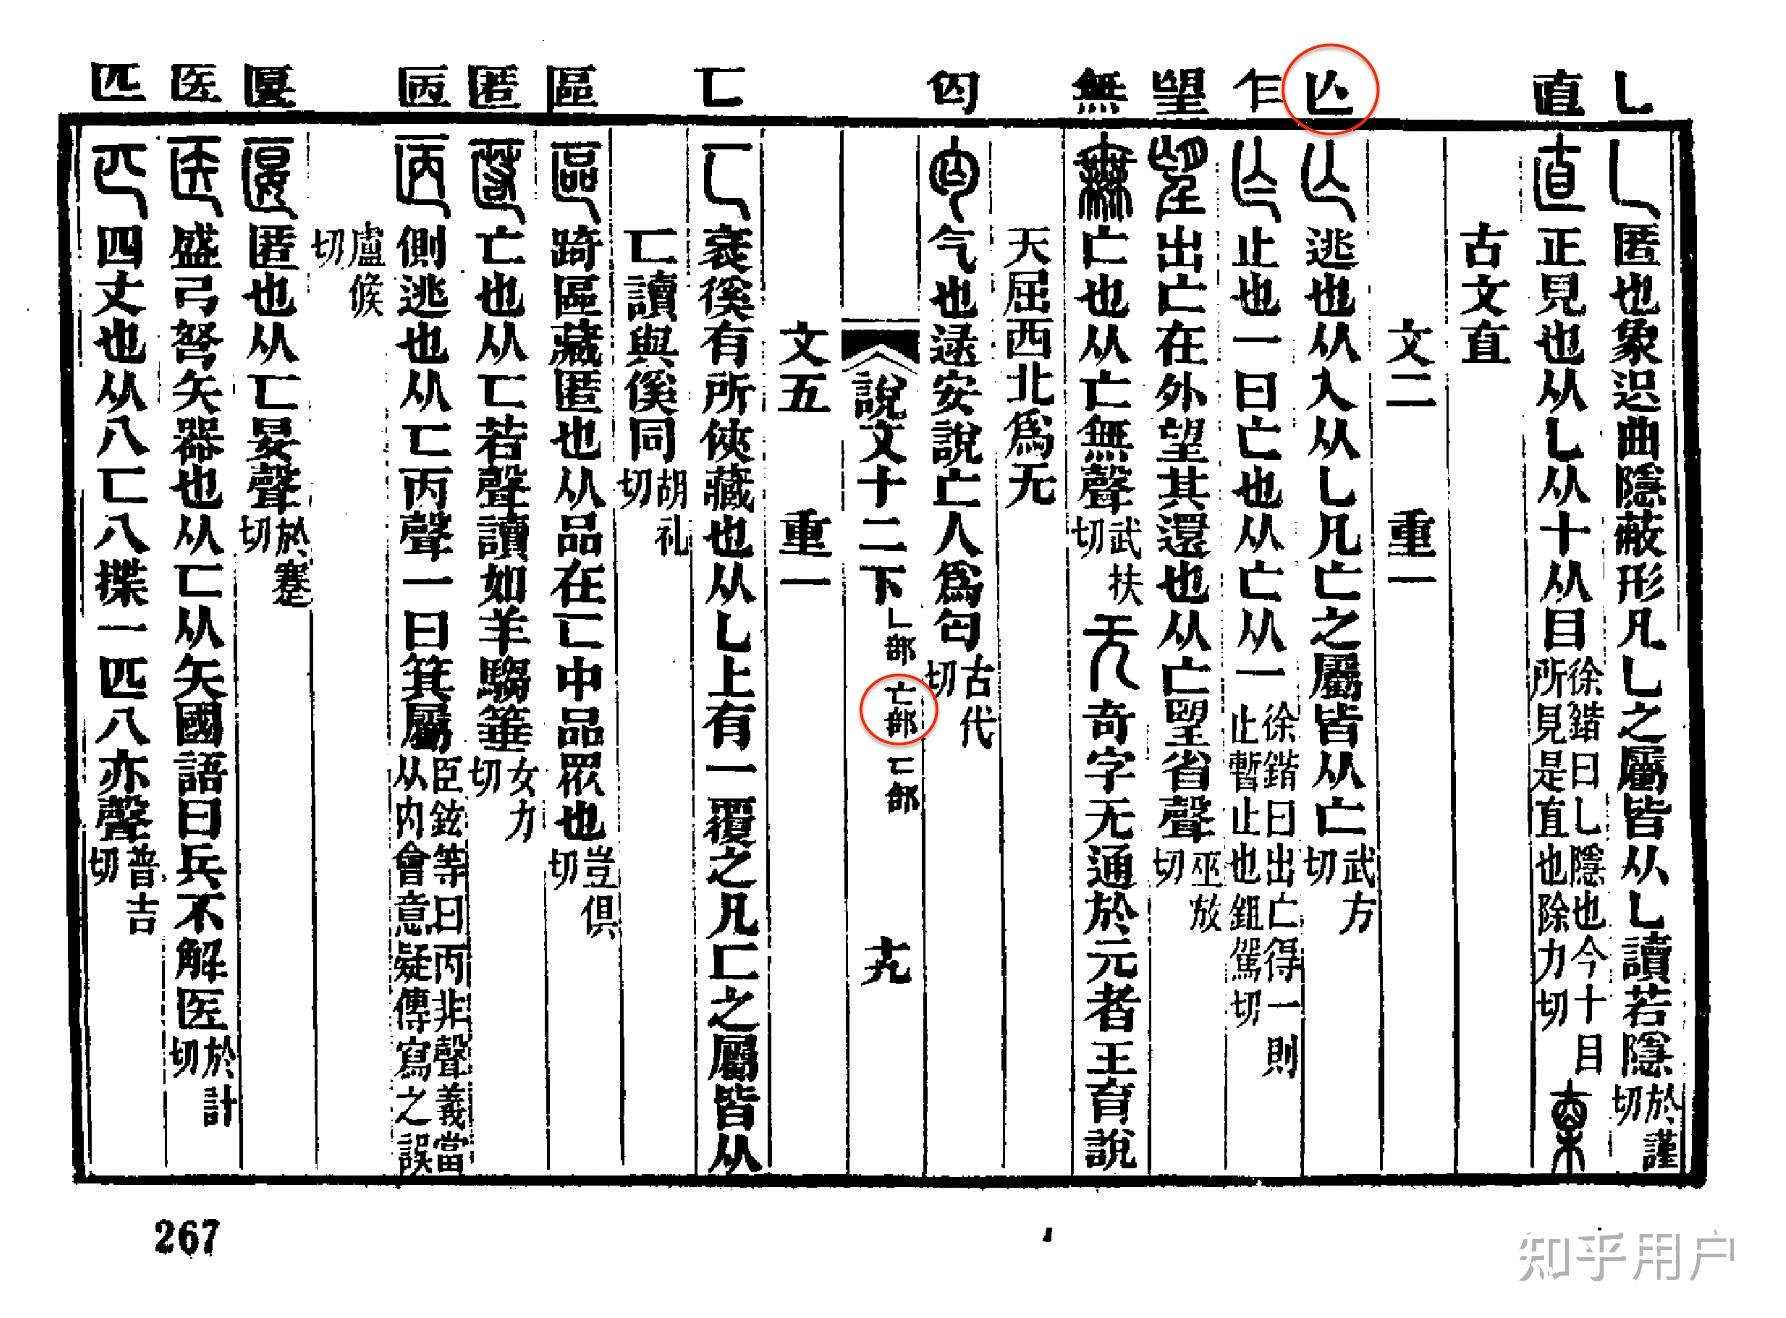 乚
直
亾
乍
望
無
匃
匸
區
匿
匧
匽
医
匹
乚匿也象迟曲隱蔽形凡乚之屬皆从乚讀若隱於謹切
直正見也从乚从十从目徐鍇曰乚隱也今十目所見是直也除力切
古文直
文二 重一
亾逃也从入从乚凡亡之屬皆从亡武方切
乍止也一曰亡也从亡从一徐鍇曰出亡得一則止暫止也鉏駕切
望出亡在外望其還也从亡朢省聲巫放切
無亡也从亡無聲武扶切无奇字无通於元者王育說
天屈西北爲无
匃气也逯安說亡人爲匃古代切
說文十二下 乚部 亡部 匸部
文五 重一
匸衺徯有所俠藏也从乚上有一覆之凡匸之屬皆从
匸讀與傒同胡礼切
區踦區藏匿也从品在匸中品眾也豈俱切
匿亡也从匸若聲讀如羊騶箠女力切
側逃也从匸丙聲一曰箕屬臣鉉等曰丙非聲義當从内會意疑傳寫之誤
盧候切
匽匿也从匸妟聲於蹇切
医盛弓弩矢器也从匸从矢國語曰兵不解医於計切
匹四丈也从八匸八揲一匹八亦聲普吉切
267
知乎用户